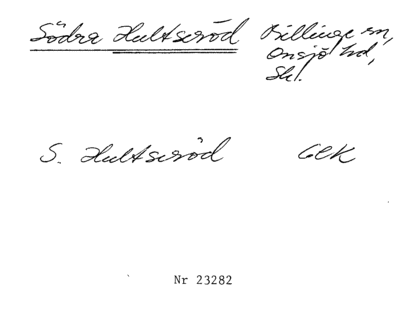 Södra Hultseröd Billinge sn,
Onsjö hd,
Sk.
S. Hultseröd GEK
Nr 23282